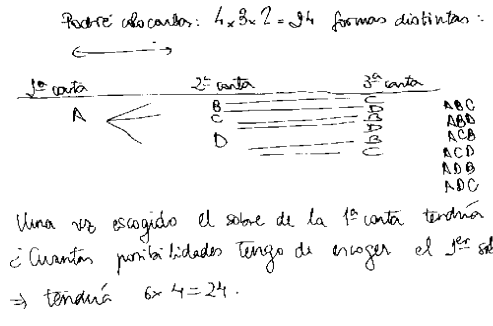 Podré colocarlas: 4x3x2 = 24 formas distintas:
1ª carta 2ª carta 3ª carta
A B C ABC
D ABD
C B ACB
D ACD
D B ADB
C ADC
Una vez escogido el sobre de la 1ª carta tendría
¿Cuantas posibilidades tengo de escoger el 1er
⇒ tendría 6x4=24.